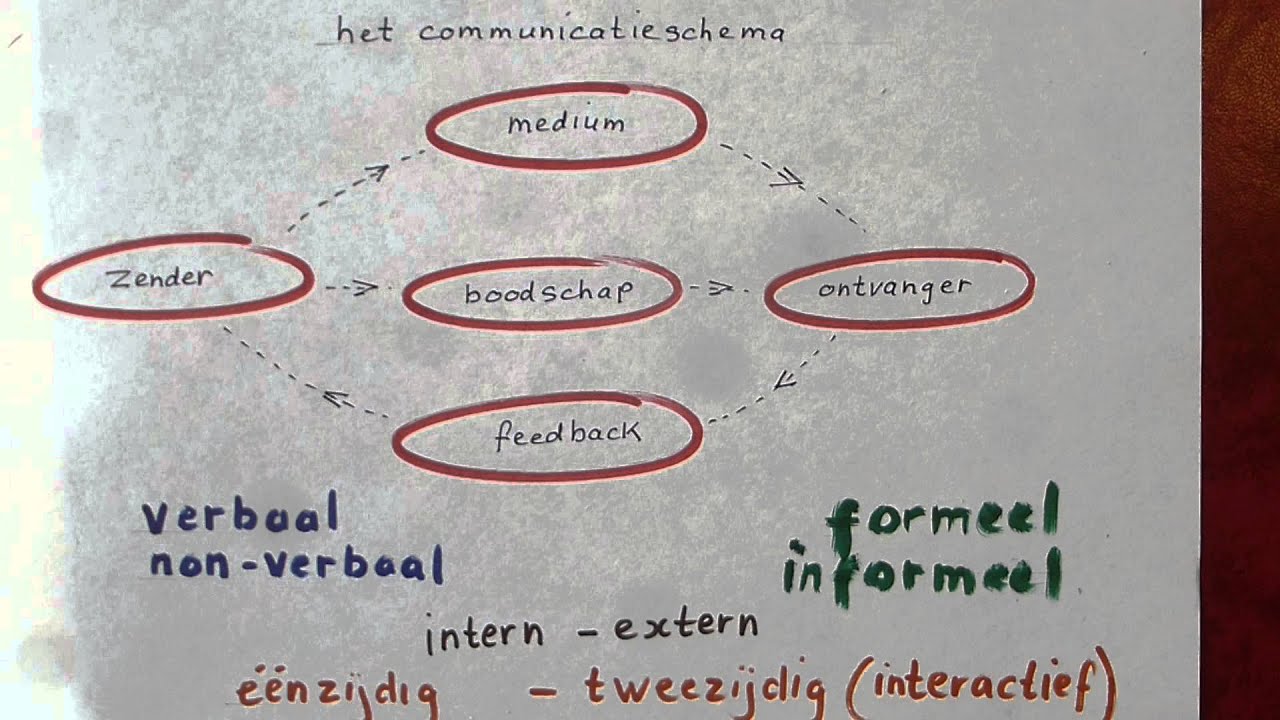 het communicatieschema
medium
zender boodschap ontvanger
feedback
verbaal formeel
non-verbaal informeel
intern - extern
ëënzijdig - tweezijdig (interactief)